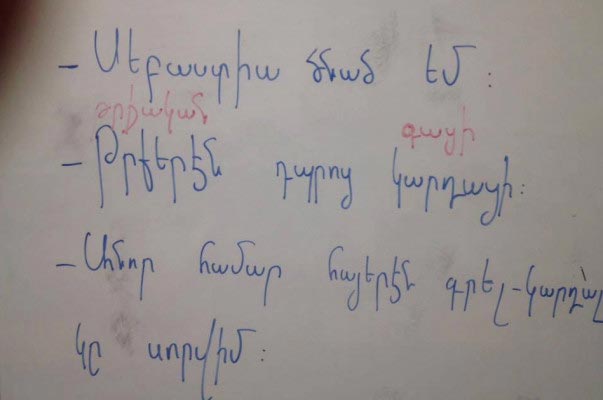 – Սեբաստիա ծնած եմ :
թրքական գացի
– Թրքերէն դպրոց կարդացի :
– Անոր համար հայերէն գրել-կարդալ
կը սորվիմ :